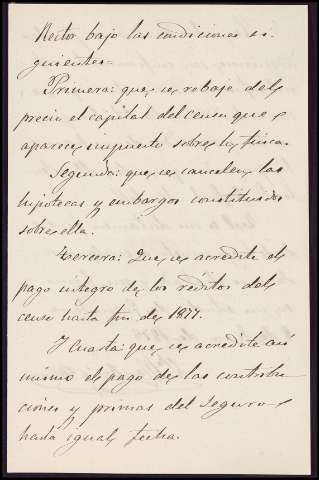 Rector bajo las condiciones si-
guientes=
Primera: que se rebaje del
precio el capital del censo que
aparece impuesto sobre la finca.
Segunda: que se cancelen las
hipotecas y embargos constituidos
sobre ella.
Tercera: Que se acredite el
pago integro de los réditos del
censo hasta fin de 1877.
Y Cuarta: que se acredite asi
mismo el pago de las contribu
ciones y primas del Seguro
hasta igual fecha.